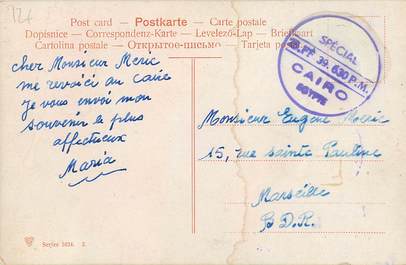 124
Post card — Postkarte — Carte postale
Dopisnice — Correspondenz-Karte — Levelező-Lap — Briefkaart
Cartolina postale — Открытое письмо — Tarjeta postal
SPÉCIAL
28.FE 39. 630 P.M.
CAIRO
EGYPTE
Cher Monsieur Meric
me revoici au Caire
Je vous envoi mon
souvenir le plus
affectueux
Maria
Monsieur Eugene Meric
15, rue Sainte Pauline
Marseille
B.D.R.
Series 1624. 2.